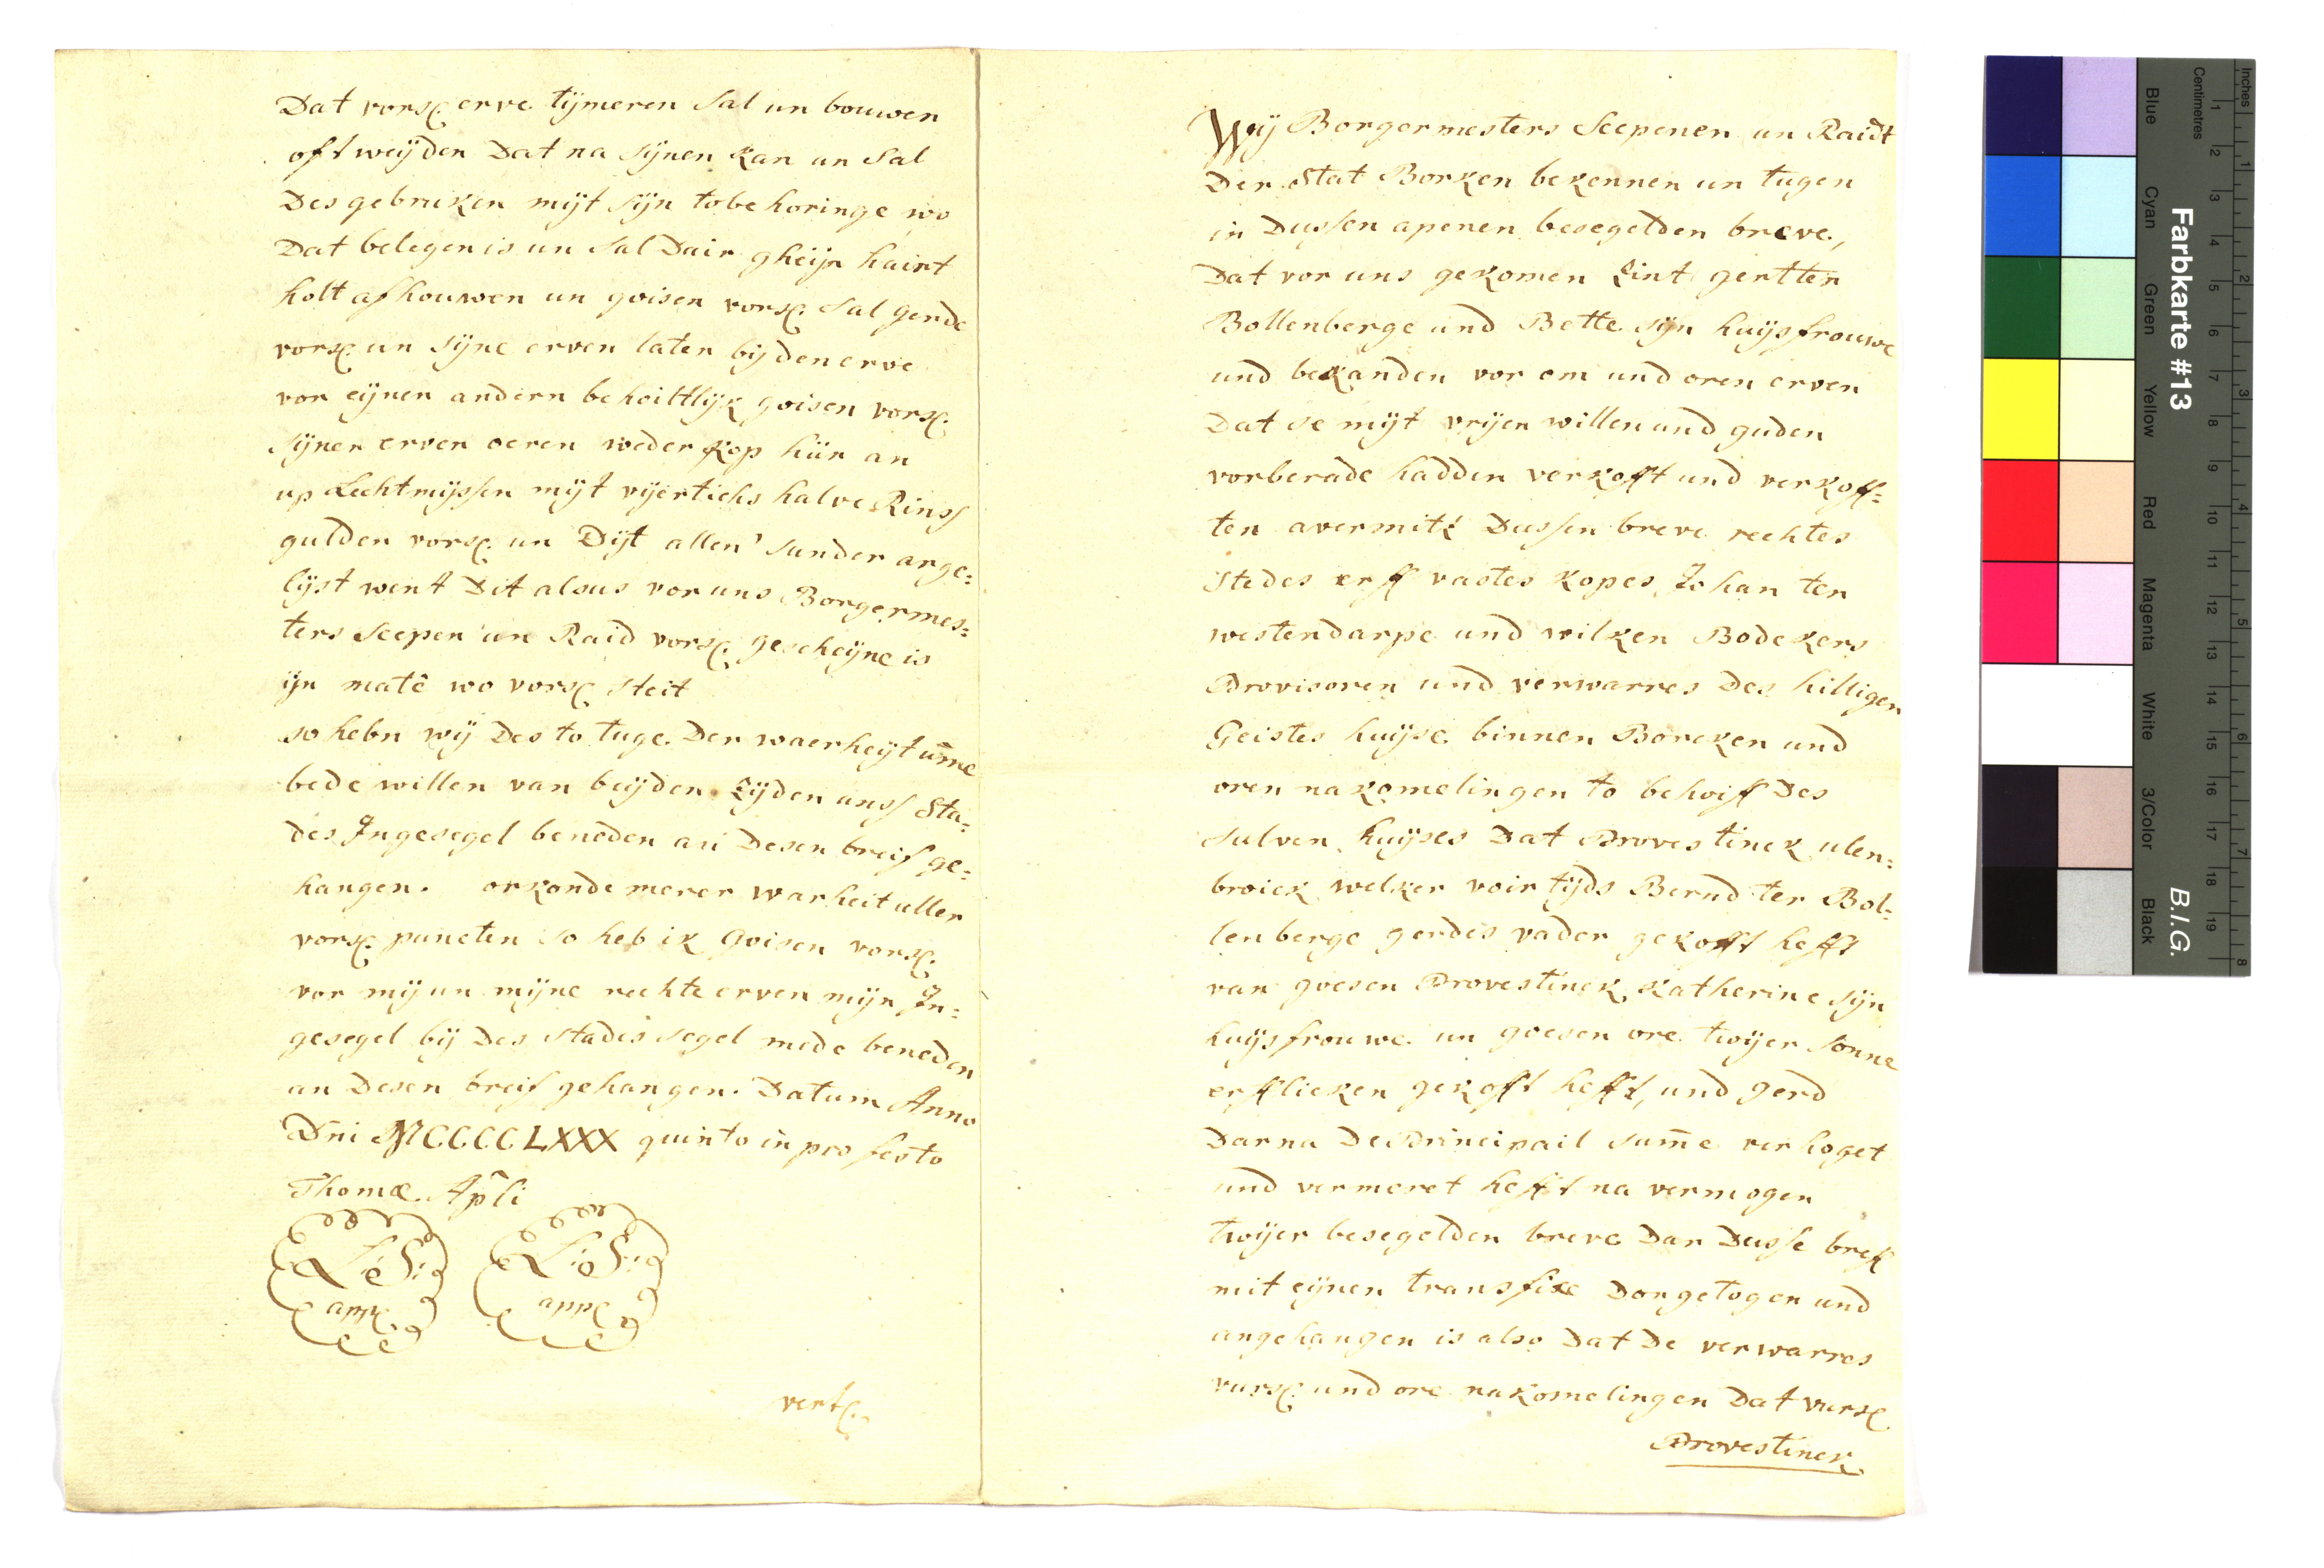 Dat vorsc. erve tijmeren sal un bouwen
oft weijden Dat na sijnen kan un sal
Des gebruken mijt sijn tobehoringe wo
Dat belegen is un sal Dair gheijn haint
holt afhouwen un goisen vorsc. sal gerde
vorsc. un sijne erven laten bij den erve
vor eijnen andern beheiltlijk goisen vorsc.
sijnen erven oeren wederkop hiir an
up Lechtmijssen mijt vijertichs halve Rinss
gulden vorsc. un Dijt allen sunder arge=
lijst went Dit alsus vor uns Borgermes=
ters Scepen un Raid vorsc. gescheijne is
ijn matē wo vorsc. steit
so hebn wij Des to tuge Der waerheijt um̄e
bede willen van beijden zijden unss Sta=
des Ingesegel beneden an Desen breif ge=
hangen. orkonde merer warheit aller
vorsc. puncten so heb ik Goisen vorsc.
vor mij un mijne rechte erven mijn In=
gesegel bij Des stades segel mede beneden
an Desen breif gehangen. Datum Anno
Dn̄i MCCCCLXXX quinto in profesto
Thomæ Ap̄li
L: S: L: S:
appc. appc.
vertc.
Wij Borgermesters Scepenen un Raidt
Der Stat Borken bekennen un tugen
in Dussen apenen besegelden breve,
Dat vor uns gekomen sint gertten
Bollenberge und Bette sijn huijsfrouwe
und bekanden vor em und oren erven
Dat se mijt vrijen willen und guden
vorberade hadden verkofft und verkoff=
ten avermitz Dussen breve rechtes
stedes erff vastes kopes Johan ten
westendarpe und wilken Bodekers
Provisoren und verwarres Des hilligen
Geistes huijse binnen Borcken und
oren nakomelingen to behoiff Des
sulven huijses Dat Provestinck ulen=
broick welker voirtijds Bernd ter Bol=
lenberge gerdes vader gekofft hefft
van goesen Provestinck, Katherine sijn
huijsfrouwe un goesen ore twijer sonne
erfflicken gekofft hefft, und gerd
Darna De Principail sum̄e verhoget
und vermeret hefft na vermogen
twijer besegelden breve Dar Dusse breff
mit eijnen transfixe Dorgetogen und
angehangen is also Dat De verwarres
vursc. und ore nakomelingen Dat vursc.
Provestinck
Farbkarte #13
B.I.G.
Centimetres
Inches
Blue
Cyan
Green
Yellow
Red
Magenta
White
3/Color
Black
1 2 3 4 5 6 7 8 9 10 11 12 13 14 15 16 17 18 19
1 2 3 4 5 6 7 8